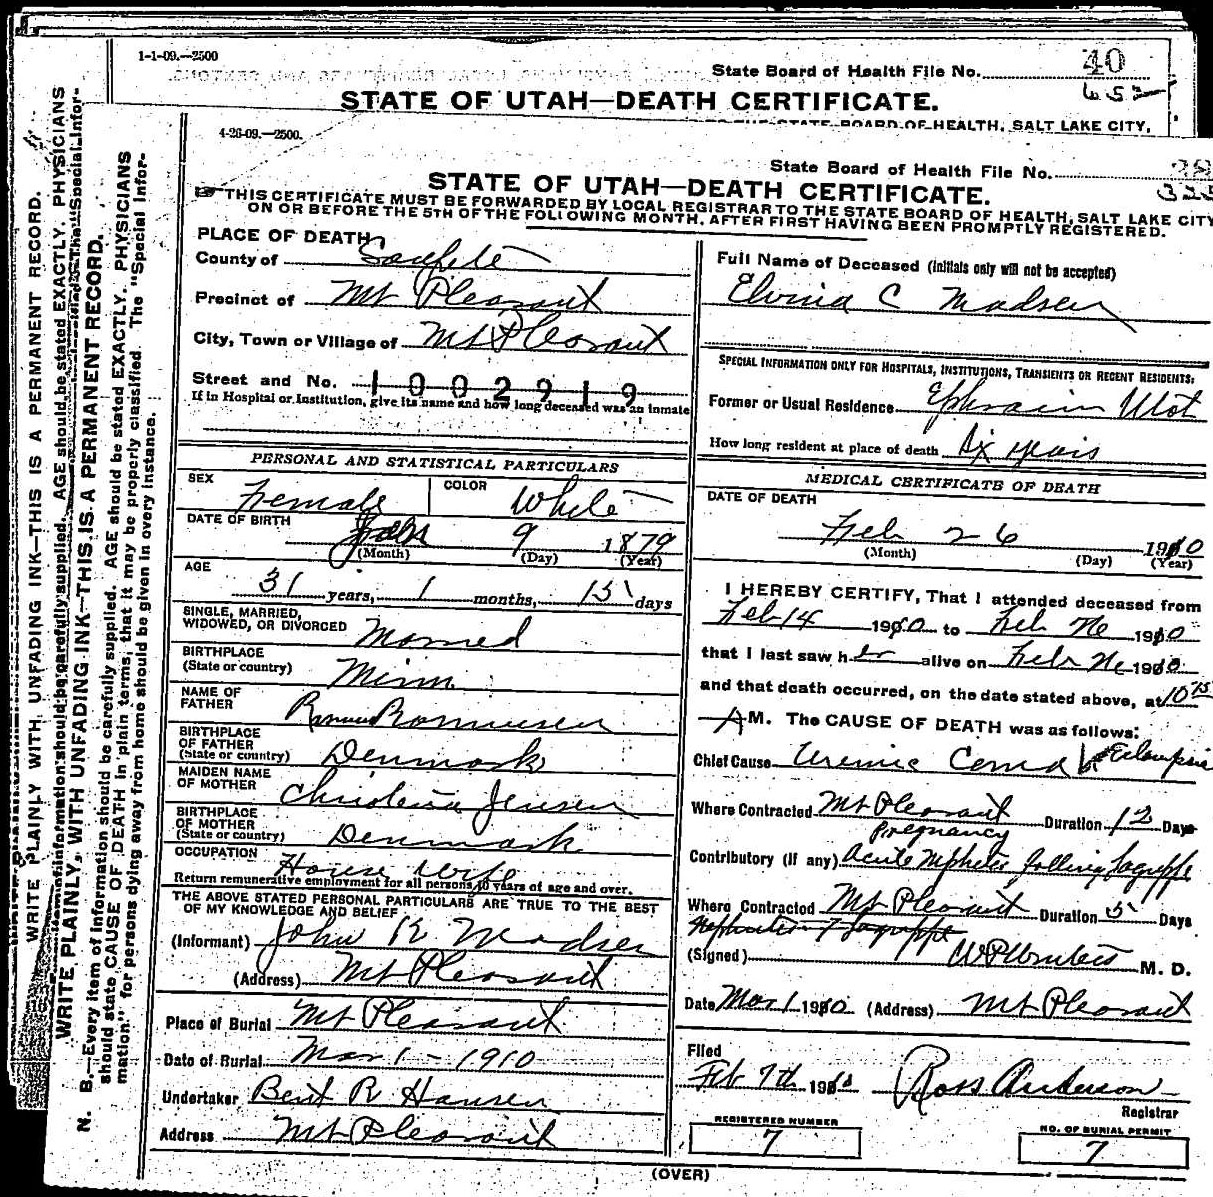 1-1-09.—2500
State Board of Health File No. 40
652
STATE OF UTAH—DEATH CERTIFICATE.
STATE BOARD OF HEALTH, SALT LAKE CITY,
4-26-09.—2500.
State Board of Health File No.
STATE OF UTAH—DEATH CERTIFICATE.
THIS CERTIFICATE MUST BE FORWARDED BY LOCAL REGISTRAR TO THE STATE BOARD OF HEALTH, SALT LAKE CITY
ON OR BEFORE THE 5TH OF THE FOLLOWING MONTH, AFTER FIRST HAVING BEEN PROMPTLY REGISTERED.
WRITE PLAINLY WITH UNFADING INK—THIS IS A PERMANENT RECORD.
AGE should be stated EXACTLY. PHYSICIANS
WRITE PLAINLY, WITH UNFADING INK—THIS IS A PERMANENT RECORD.
N. B.—Every item of information should be carefully supplied. AGE should be stated EXACTLY. PHYSICIANS
should state CAUSE OF DEATH in plain terms, that it may be properly classified. The "Special Infor-
mation" for persons dying away from home should be given in every instance.
PLACE OF DEATH
County of Sanpete
Precinct of Mt Pleasant
City, Town or Village of Mt Pleasant
Street and No. 1002919
If in Hospital or Institution, give its name and how long deceased was an inmate
PERSONAL AND STATISTICAL PARTICULARS
SEX Female COLOR White
DATE OF BIRTH 9 1879
(Month) (Day) (Year)
AGE 31 years, 1 months, 15 days
SINGLE, MARRIED,
WIDOWED, OR DIVORCED Married
BIRTHPLACE
(State or country) Minn
NAME OF
FATHER Rasmussen
BIRTHPLACE
OF FATHER
(State or country) Denmark
MAIDEN NAME
OF MOTHER Jensen
BIRTHPLACE
OF MOTHER
(State or country) Denmark
OCCUPATION House Wife
Return remunerative employment for all persons 10 years of age and over.
THE ABOVE STATED PERSONAL PARTICULARS ARE TRUE TO THE BEST
OF MY KNOWLEDGE AND BELIEF
(Informant) John R Madsen
(Address) Mt Pleasant
Place of Burial Mt Pleasant
Date of Burial Mar 1 - 1910
Undertaker Bent R Hansen
Address Mt Pleasant
Full Name of Deceased (initials only will not be accepted)
Elvina C Madsen
SPECIAL INFORMATION ONLY FOR HOSPITALS, INSTITUTIONS, TRANSIENTS OR RECENT RESIDENTS:
Former or Usual Residence Ephraim Utah
How long resident at place of death Six years
MEDICAL CERTIFICATE OF DEATH
DATE OF DEATH
Feb 26 1910
(Month) (Day) (Year)
I HEREBY CERTIFY, That I attended deceased from
Feb 14 1910 to Feb 26 1910
that I last saw her alive on Feb 26 1910
and that death occurred, on the date stated above, at 10 15
A M. The CAUSE OF DEATH was as follows:
Chief Cause Uremic Coma Eclampsia
Where Contracted Mt Pleasant Duration 12 Days
pregnancy
Contributory (if any) Acute Nephritis following Lagrippe
Where Contracted Mt Pleasant Duration 5 Days
(Signed) M. D.
Date Mar 1 1910 (Address) Mt Pleasant
Filed
Feb 7th 1910 Ross Anderson
Registrar
REGISTERED NUMBER
7
NO. OF BURIAL PERMIT
7
(OVER)